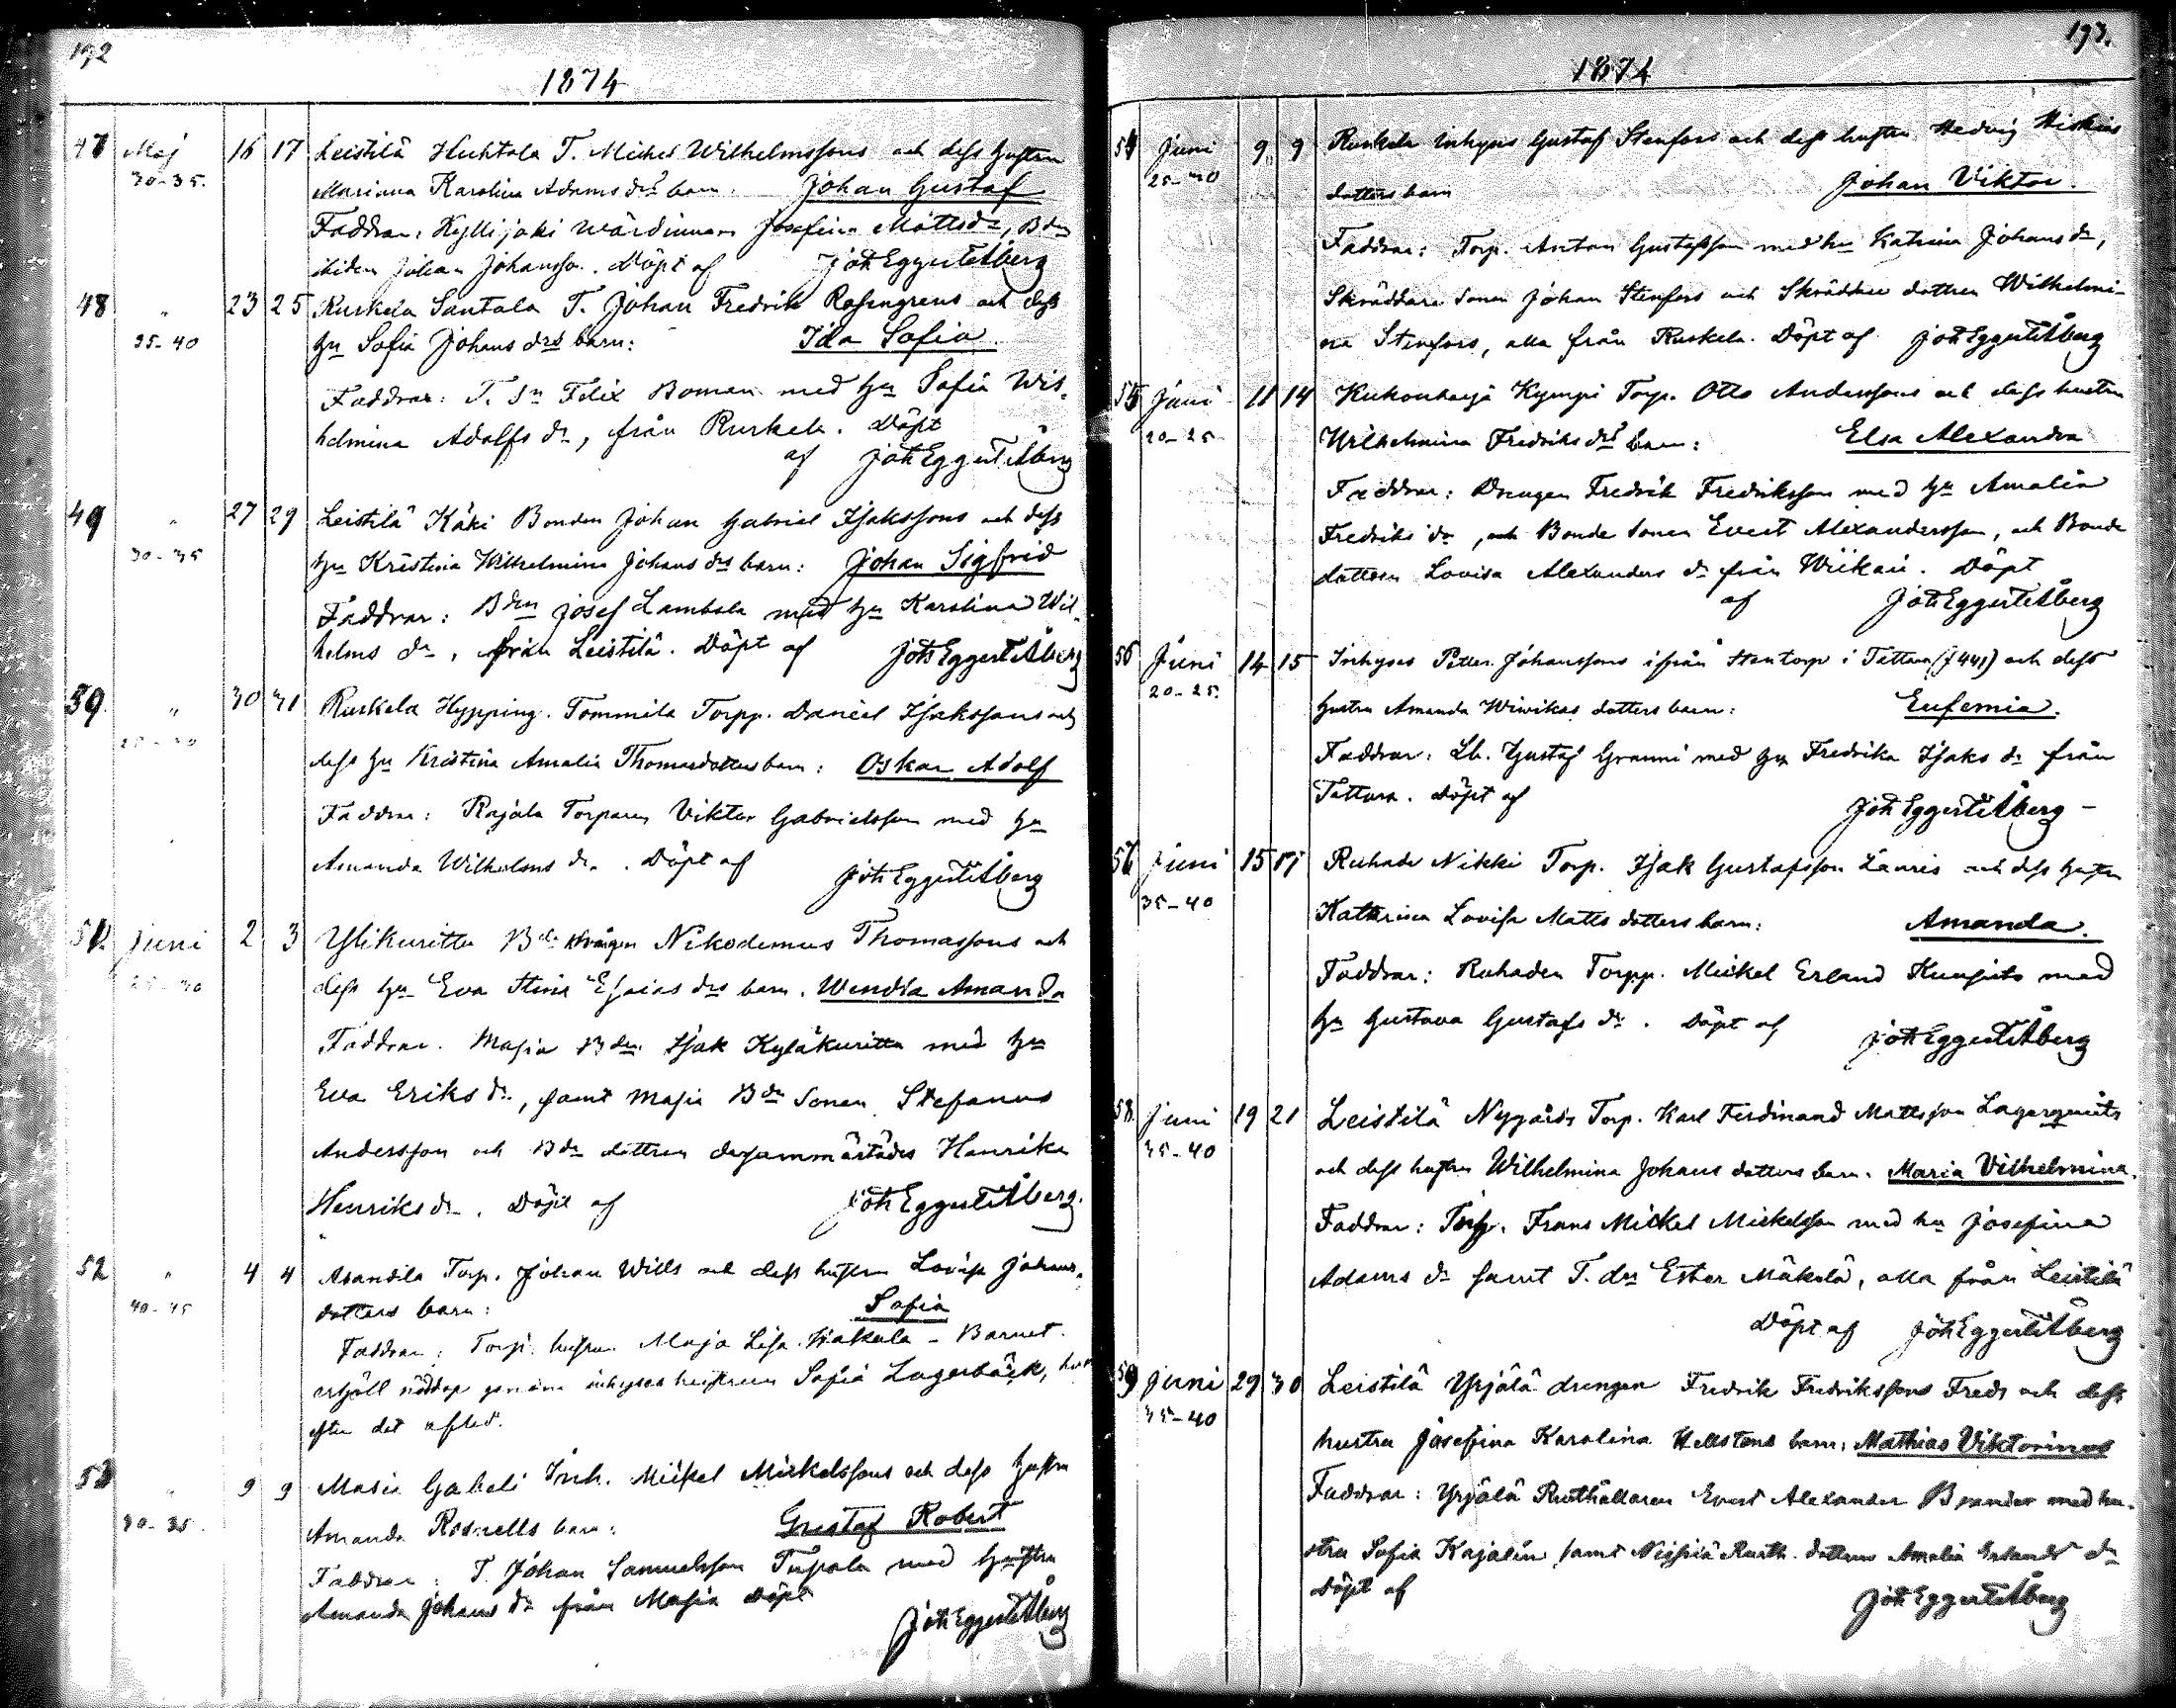 192
1874
47 Maj 16 17 Leistilä Huhtala T. Mickel Wilhelmssons och dess hustru
30-35. Mariana Karolina Adamsdrs barn. Johan Gustaf
Faddrar: Kyllijoki wärdinnan Josefina Mattsdr, Bde
Johan Johansson. Döpt af Joh Eggert Åberg
48 " 23 25 Ruskela Santala T. Johan Fredrik Rosengrens och dess
35-40 hu Sofia Johans drs barn: Ida Sofia.
Faddrar: T. Sn Felix Boman med hu Sofia Wil-
helmina Adolfs dr, från Ruskela. Döpt
af Joh Eggert Åberg
49 " 27 29 Leistilä Käki Bonden Johan Gabriel Isakssons och dess
30-35 hu Kristina Wilhelmina Johans drs barn: Johan Sigfrid
Faddrar: Bden Josef Lambala med hu Karolina Wil-
helms dr, från Leistilä. Döpt af Joh Eggert Åberg
" 30 31 Ruskela Hypping. Tommila Torpp. Daniel Isakssons och
dess hu Kristina Amalia Thomasdotters barn: Oskar Adolf
Faddrar: Rajala Torparen Viktor Gabrielsson med hu
Amanda Wilhelms dr. Döpt af Joh Eggert Åberg
51 Juni 2 3 Ylikuritta Bde drängen Nikodemus Thomassons och
25-30 dess hu Eva Stina Esaias drs barn. Wendla Amanda
Faddrar. Masia Bden Isak Kyläkuritta med hu
Eva Eriks dr, samt Masia Bde Sonen Stefanus
Andersson och Bde dottren dersammastädes Henrika
Henriks dr. Döpt af Joh Eggert Åberg.
52 " 4 4 Torp. Johan Wills och dess hustru Lovisa Johans-
40-45 dotters barn: Sofia
Faddrar: Torp. hustrun Maja Lisa Hakala - Barnet
erhöll nöddop genom inhyses hustrun Sofia Lagerbäck,
efter det afled.
53 " 9 9 Masia Gabeli Inh. Mickel Mickelssons och dess hustru
30-35. Amanda Rosnells barn: Gustaf Robert
Faddrar: T. Johan Samuelsson Tupala med hustru
Amanda Johans dr från Masia Döpt
Joh Eggert Åberg
193.
1874
54 Juni 9 9 Ruskela Inhyses Gustaf Stenfors och dess hustru Hedvig Hiskias
25-30 dotters barn Johan Viktor.
Faddrar: Torp. Anton Gustafsson med hu Katrina Johans dr,
Skräddare Sonen Johan Stenfors och Skräddare dottren Wilhelmi-
na Stenfors, alla från Ruskela. Döpt af Joh Eggert Åberg
55 Juni 11 14 Kukonharja Kymppi Torp. Otto Anderssons och dess hustru
20-25 Wilhelmina Fredriks drs barn: Elsa Alexandra
Faddrar: Drengen Fredrik Fredriksson med hu Amalia
Fredriks dr, och Bonde Sonen Evert Alexandersson, och Bonde
dottren Lovisa Alexanders dr från Wiikari. Döpt
af Joh Eggert Åberg
56 Juni 14 15 Inhyses Petter Johanssons ifrån Stentorp i Tattara (J 441) och dess
20-25. hustru Amanda Wiwikas dotters barn: Eufemia.
Faddrar: Lb. Gustaf Granni med hu Fredrika Isaks dr från
Tattara. Döpt af Joh Eggert Åberg -
57 Juni 15 17 Ruhade Nikki Torp. Isak Gustafsson Lauris och dess hustru
35-40 Katarina Lovisa Matts dotters barn: Amanda.
Faddrar: Ruhaden Torpp. Mickel Erland Kunsists med
hu Gustava Gustafs dr. Döpt af Joh Eggert Åberg
58. Juni 19 21 Leistilä Nygårds Torp. Karl Ferdinand Mattsson Lagerqvists
35-40 och dess hustru Wilhelmina Johans dotters barn. Maria Vilhelmina.
Faddrar: Torp. Frans Mickel Mickelsson med hu Josefina
Adams dr samt T. drn Ester Mäkelä, alla från Leistilä
Döpt af Joh Eggert Åberg
59 Juni 29 30 Leistilä Yrjälä drengen Fredrik Fredrikssons Freds och dess
35-40 hustru Josefina Karolina Hellstens barn: Mathias Viktorinus
Faddrar: Yrjälä Rusthållaren Evert Alexander Brander med hu-
stru Sofia Kajalén samt Rusth. dottren Amalia Erlands dr
Döpt af Joh Eggert Åberg